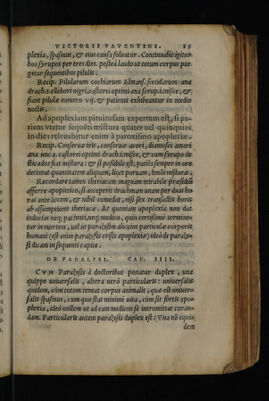 VICTORII FAVENTINI. 15
plexia, spasmus, & eius causa soluatur. Continuabit igitur
hos syrupos per tres dies. postea laudo ut totum corpus pur-
getur sequentibus pilulis.
Recip. Pilularum cochiarum
drach.
fiant pilulæ numero vij. & patienti exhibeantur in medio
noctis.
Ad apoplexiam pituitosam expertum est, si pa-
tiens vtatur sequēti mistura quater uel quinquies
in die: releuabitur enim à paroxismo apoplexiæ.
Recip. Conseruæ iridis, conseruæ acori, diamusci amari
ana unc.
& si possibile est, patiēs semper in ore
detineat quantitatem aliquam, licet paruam, huius misturæ.
Recordare tamen theriacam magnum mirabile præsidiū
afferre apoplectico, si acceperit drachmam unam per duas ho-
ras ante lucem, & nihil comedat, nisi sex transactis horis
ab assumptione theriacæ. At quoniam apoplexia non dat
inducias neq; patienti, neq; medico, quin certissime termine-
tur in mortem, uel in paralysim alicuius particulæ corporis
humani (est enim paralysis crisis apoplexiæ) ideo de paraly-
si dicam in sequenti capite.
DE PARALYSI. CAP. IIII.
CVM Paralysis à doctoribus ponatur duplex, una
quippe uniuersalis, altera uerò particularis: uniuersalis
quidem, cùm totum teneat corpus animalis, quæ est uniuer-
salis spasmus, cum quo stat minimè uita, cùm sit fortis apo-
plexia, ideo nollem ut ad eam medicus se intromittat curan-
dam. Particularis autem paralysis duplex est: Vna nō equi-
dem